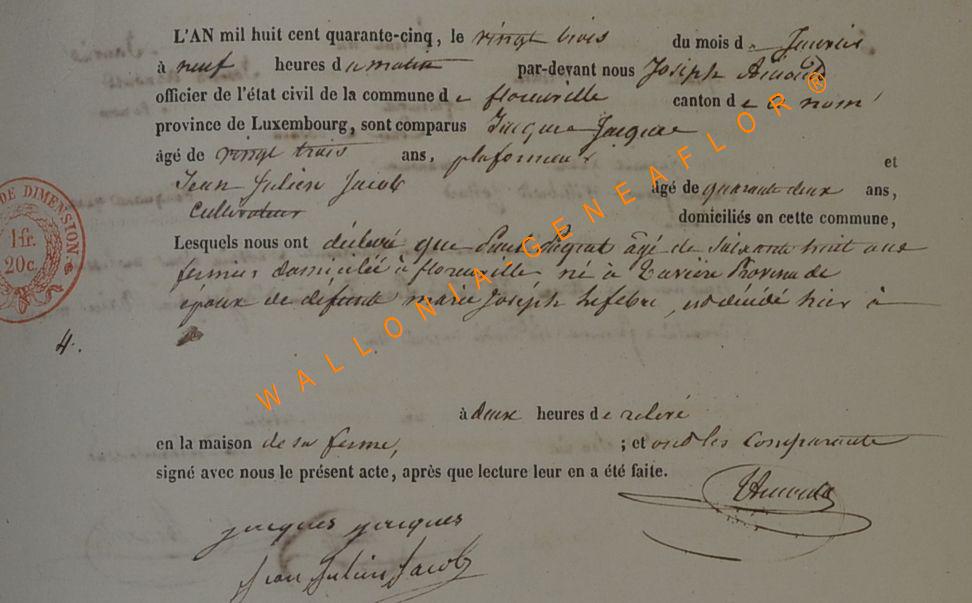 L'AN mil huit cent quarante-cinq, le vingt trois du mois de Janvier
à neuf heures du matin par-devant nous Joseph Arnould
officier de l'état civil de la commune de florenville canton de ce nom
province de Luxembourg, sont comparus Jacques Jacques
âgé de vingt trois ans, plafonneur et
Jean Julien Jacob âgé de quarante deux ans,
cultivateur domiciliés en cette commune,
Lesquels nous ont déclaré que âgé de soixante huit ans
fermier domicilié à florenville né à Province de
époux de défunte marie Joseph Lefebve, est décédé hier à
4.
à deux heures de relevé
en la maison de sa ferme, ; et ont les comparants
signé avec nous le présent acte, après que lecture leur en a été faite.
jacques jacques
Jean Julien Jacob
DE DIMENSION.
1 fr.
20 c.
WALLONIA-GENEAFLOR ®